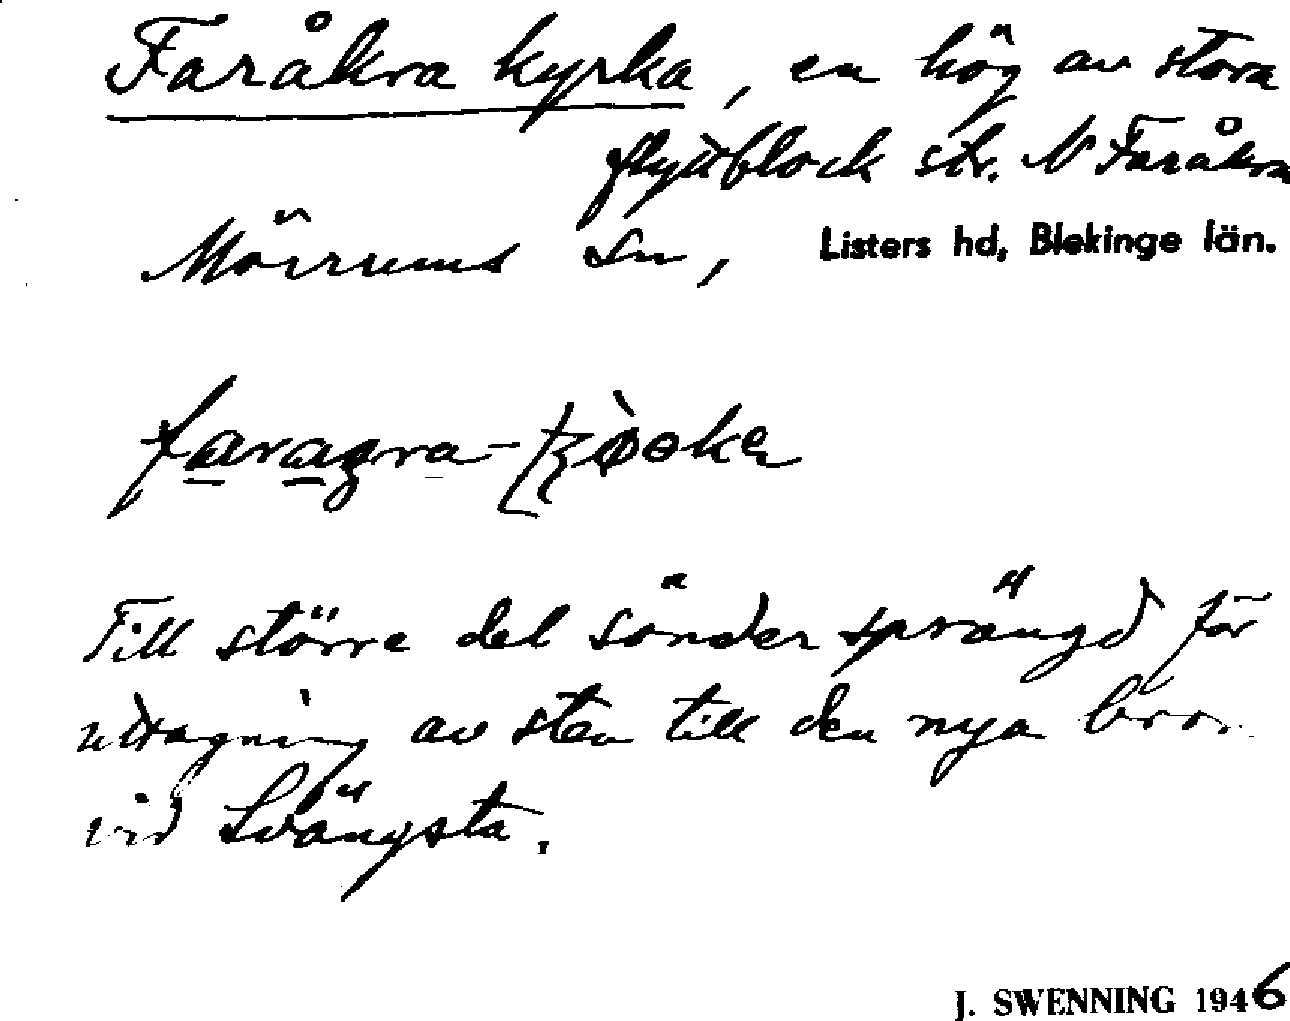 Faråkra kyrka, en hög av stora
flyttblock str. N Faråkra
Mörrums sn, Listers hd, Blekinge län.
Till större del sönder sprängd för
utdragning av sten till den nya bron
vid Svängsta.
J. SWENNING 1946